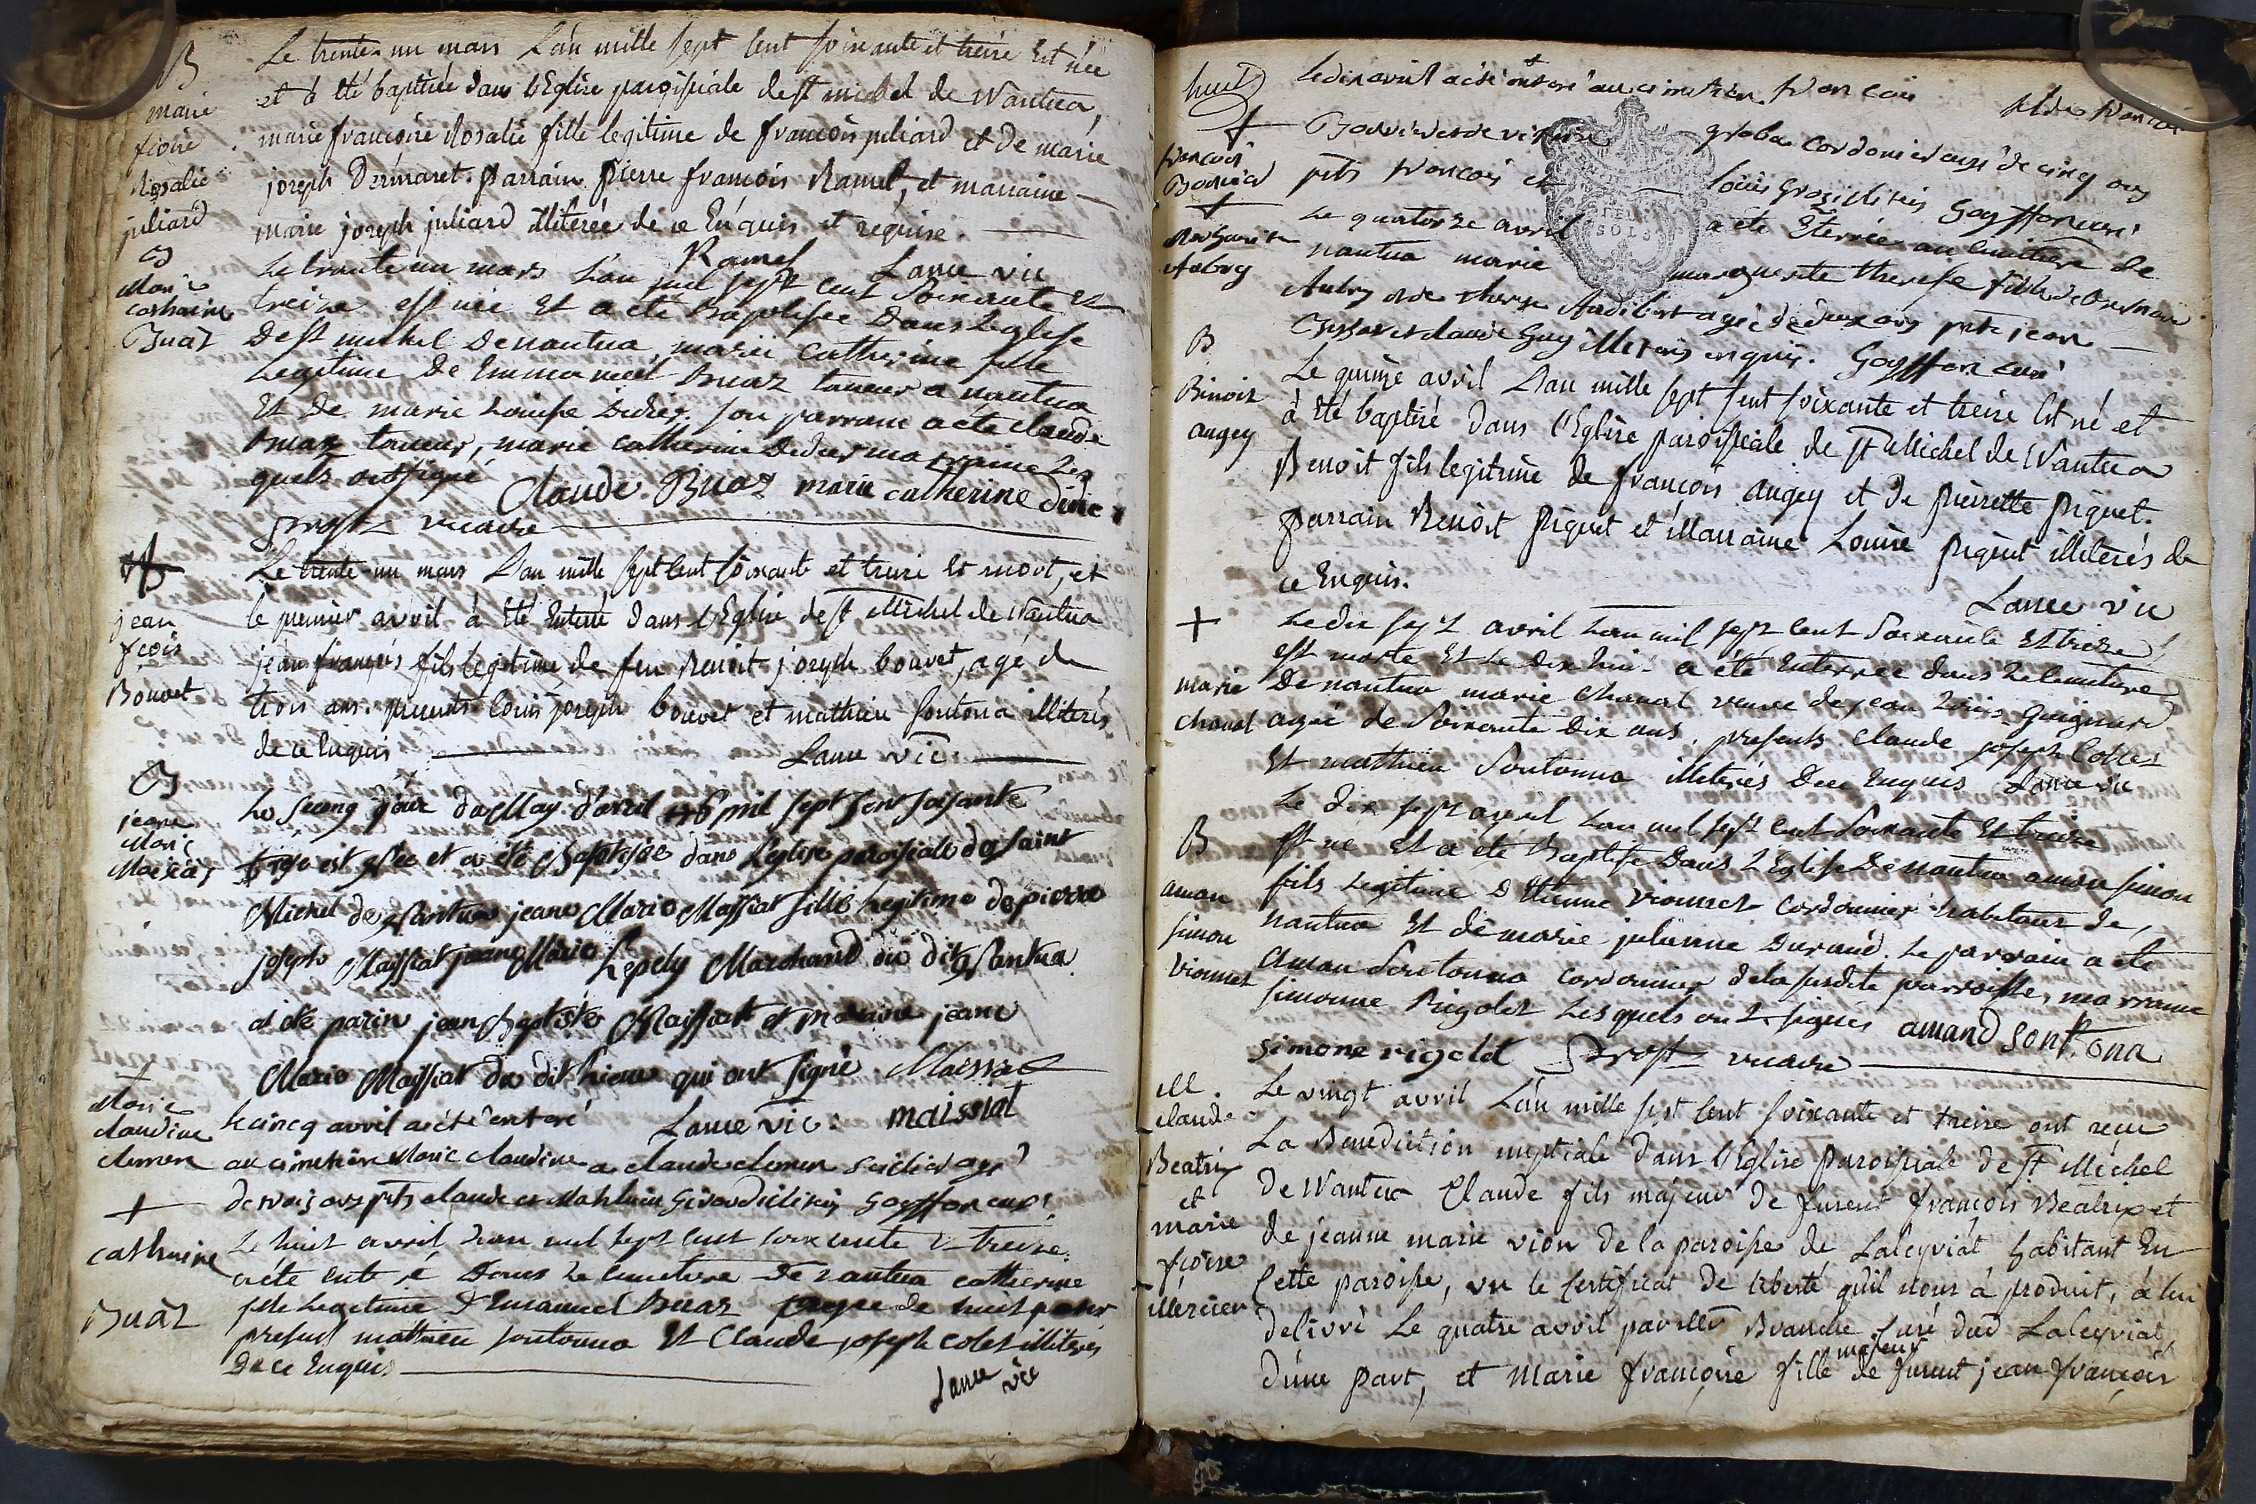 B
marie
fcoise
Rosalie
juliard
Le trente-un mars L'an mille sept cent soixante et treize Est née
et à été baptisée dans l'Eglise paroissiale de st michel de Nantua,
marie françoise Rosalie fille legitime de françois juliard et de marie
joseph Dermaret. parrain pierre françois Ramel, et marraine
marie joseph juliard illiterée de ce Enquis et requise.
Ramel Lance vic
B
Marie
catherine
Buaz
Le trente un mars L'an mil sept cent soixante Et
treize est née Et a eté Baptisée Dans Leglise
De st michel De nantua, marie Catherine fille
Legitime De Emmanuel Buaz taneur a nantua
Et De marie Louise Didier, son parrain a ete claude
Buaz taneur, marie catherine Didier marraine Les
quels ont signé Claude Buaz marie catherine didier
prost vicaire
jean
fcois
Bouvet
Le trente-un mars L'an mille sept cent soixante et treize Est mort, et
le premier avril à été Enterré dans l'Eglise de st Michel de Nantua
jean françois fils legitime de feu Benoit joseph bouvet, agé de
trois ans. presents louis joseph bouvet et mathieu sontona illiterés
de ce Enquis Lance vic
B
jeane
Marie
Maisiat
mil sept sent soisante
treze est née et a été Baptisée dans L'eglise paroisiale de saint
Michel de Nantua jeane Marie Maissiat fille Legitime de pierre
joseph Maissiat jeanne Marie Lepely Marchand du dit Nantua
a été parin jean Baptiste Maissiat et maraine jeane
Marie Maissiat du dit Lieux qui ont signé Maissiat
Lance vic: maissiat
+
Marie
claudine
clemen
Le cincq avril a été enteré
au cimetiere Marie claudine a claude clemen agé
de trois ans pnts claude et Mathieu Goyffon curé
+
catherine
Buaz
Le huit avril L'an mil sept cent soixante Et treize
a été enteré Dans Le cimetiere De nantua catherine
fille Legitime D'Emanuel Buaz de huit
present mathieu sontonna Et Claude joseph colet illiterés
De ce Enquis.
Lance vic
huit
+
francois
Le dix avril a été enteré au cimetiere francois
fils de francois
cordonier agé de cinq ans
pnts francois et louis Goyffon curé
+
Marguerite
Aubry
Le quatorze avril a ete Eterrée au cimitiere de
nantua marie marguerite therese fille de
Aubry et de therese Audibert agée de deux ans pnts jean
et claude Guy illiterés enquis. Goyffon curé
B
Benoit
augey
Le quinze avril L'an mille sept sent soixante et treize Est né et
à été baptisé dans l'Eglise paroissiale de st Michel de Nantua
Benoit fils legitime de françois augey et de pierrette piquet.
parrain Benoit piquet et Marraine Louise piquet illiterés de
ce Enquis.
Lance vic
+
marie
chanal
Le dix sept avril L'an mil sept cent soixante Et treize
est morte Et Le dix huit a été Enterrée dans Le cimetiere
De nantua marie Chanal veuve de jean Louis Guignard
agée de soixante Dix ans, presents Claude joseph Collet
Et mathieu Sontonna illiterés De ce Enquis Lance vic
B
aman
simon
Vionnet
Le dix sept avril L'an mil sept cent soixante Et treize
Est né Et a été Baptisé Dans L'Eglise De nantua aman simon
fils Legitime D'Etienne Vionnet Cordonnier habitant de,
nantua Et de marie julienne Durand. Le parrain a ete
Aman Sontonna cordonnier de la susdite parroisse, marraine
simonne Rigolet Lesquels ont signés amand sontona
simone rigolet prost vicaire
M.
claude
Beatrix
et
marie
fcoise
Mercier
Le vingt avril L'an mille sept cent soixante et treize ont reçu
La Benediction nuptiale dans l'Eglise paroissiale de st Michel
de Nantua Claude fils majeur de furent françois Beatrix et
de jeanne marie vion de la paroisse de Laleyriat habitant En
Cette paroisse, vu le Certificat de liberté qu'il nous à produit, à lui
delivré Le quatre avril par Mr Branche Curé dud Laleyriat,
d'une part, et Marie françoise fille majeure de furent jean françois